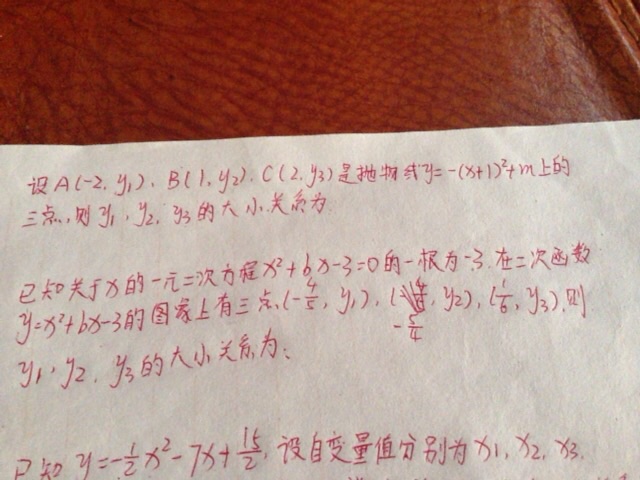 设A(-2, y₁)、B(1, y₂)、C(2, y₃)是抛物线y=-(x+1)²+m上的
三点,则y₁、y₂、y₃的大小关系为
已知关于x的一元二次方程x²+bx-3=0的一根为-3.在二次函数
y=x²+bx-3的图象上有三点(-4/5, y₁), (-5/4, y₂), (1/6, y₃),则
y₁、y₂、y₃的大小关系为:
已知y=-1/2x²-7x+15/2,设自变量值分别为x₁, x₂, x₃.